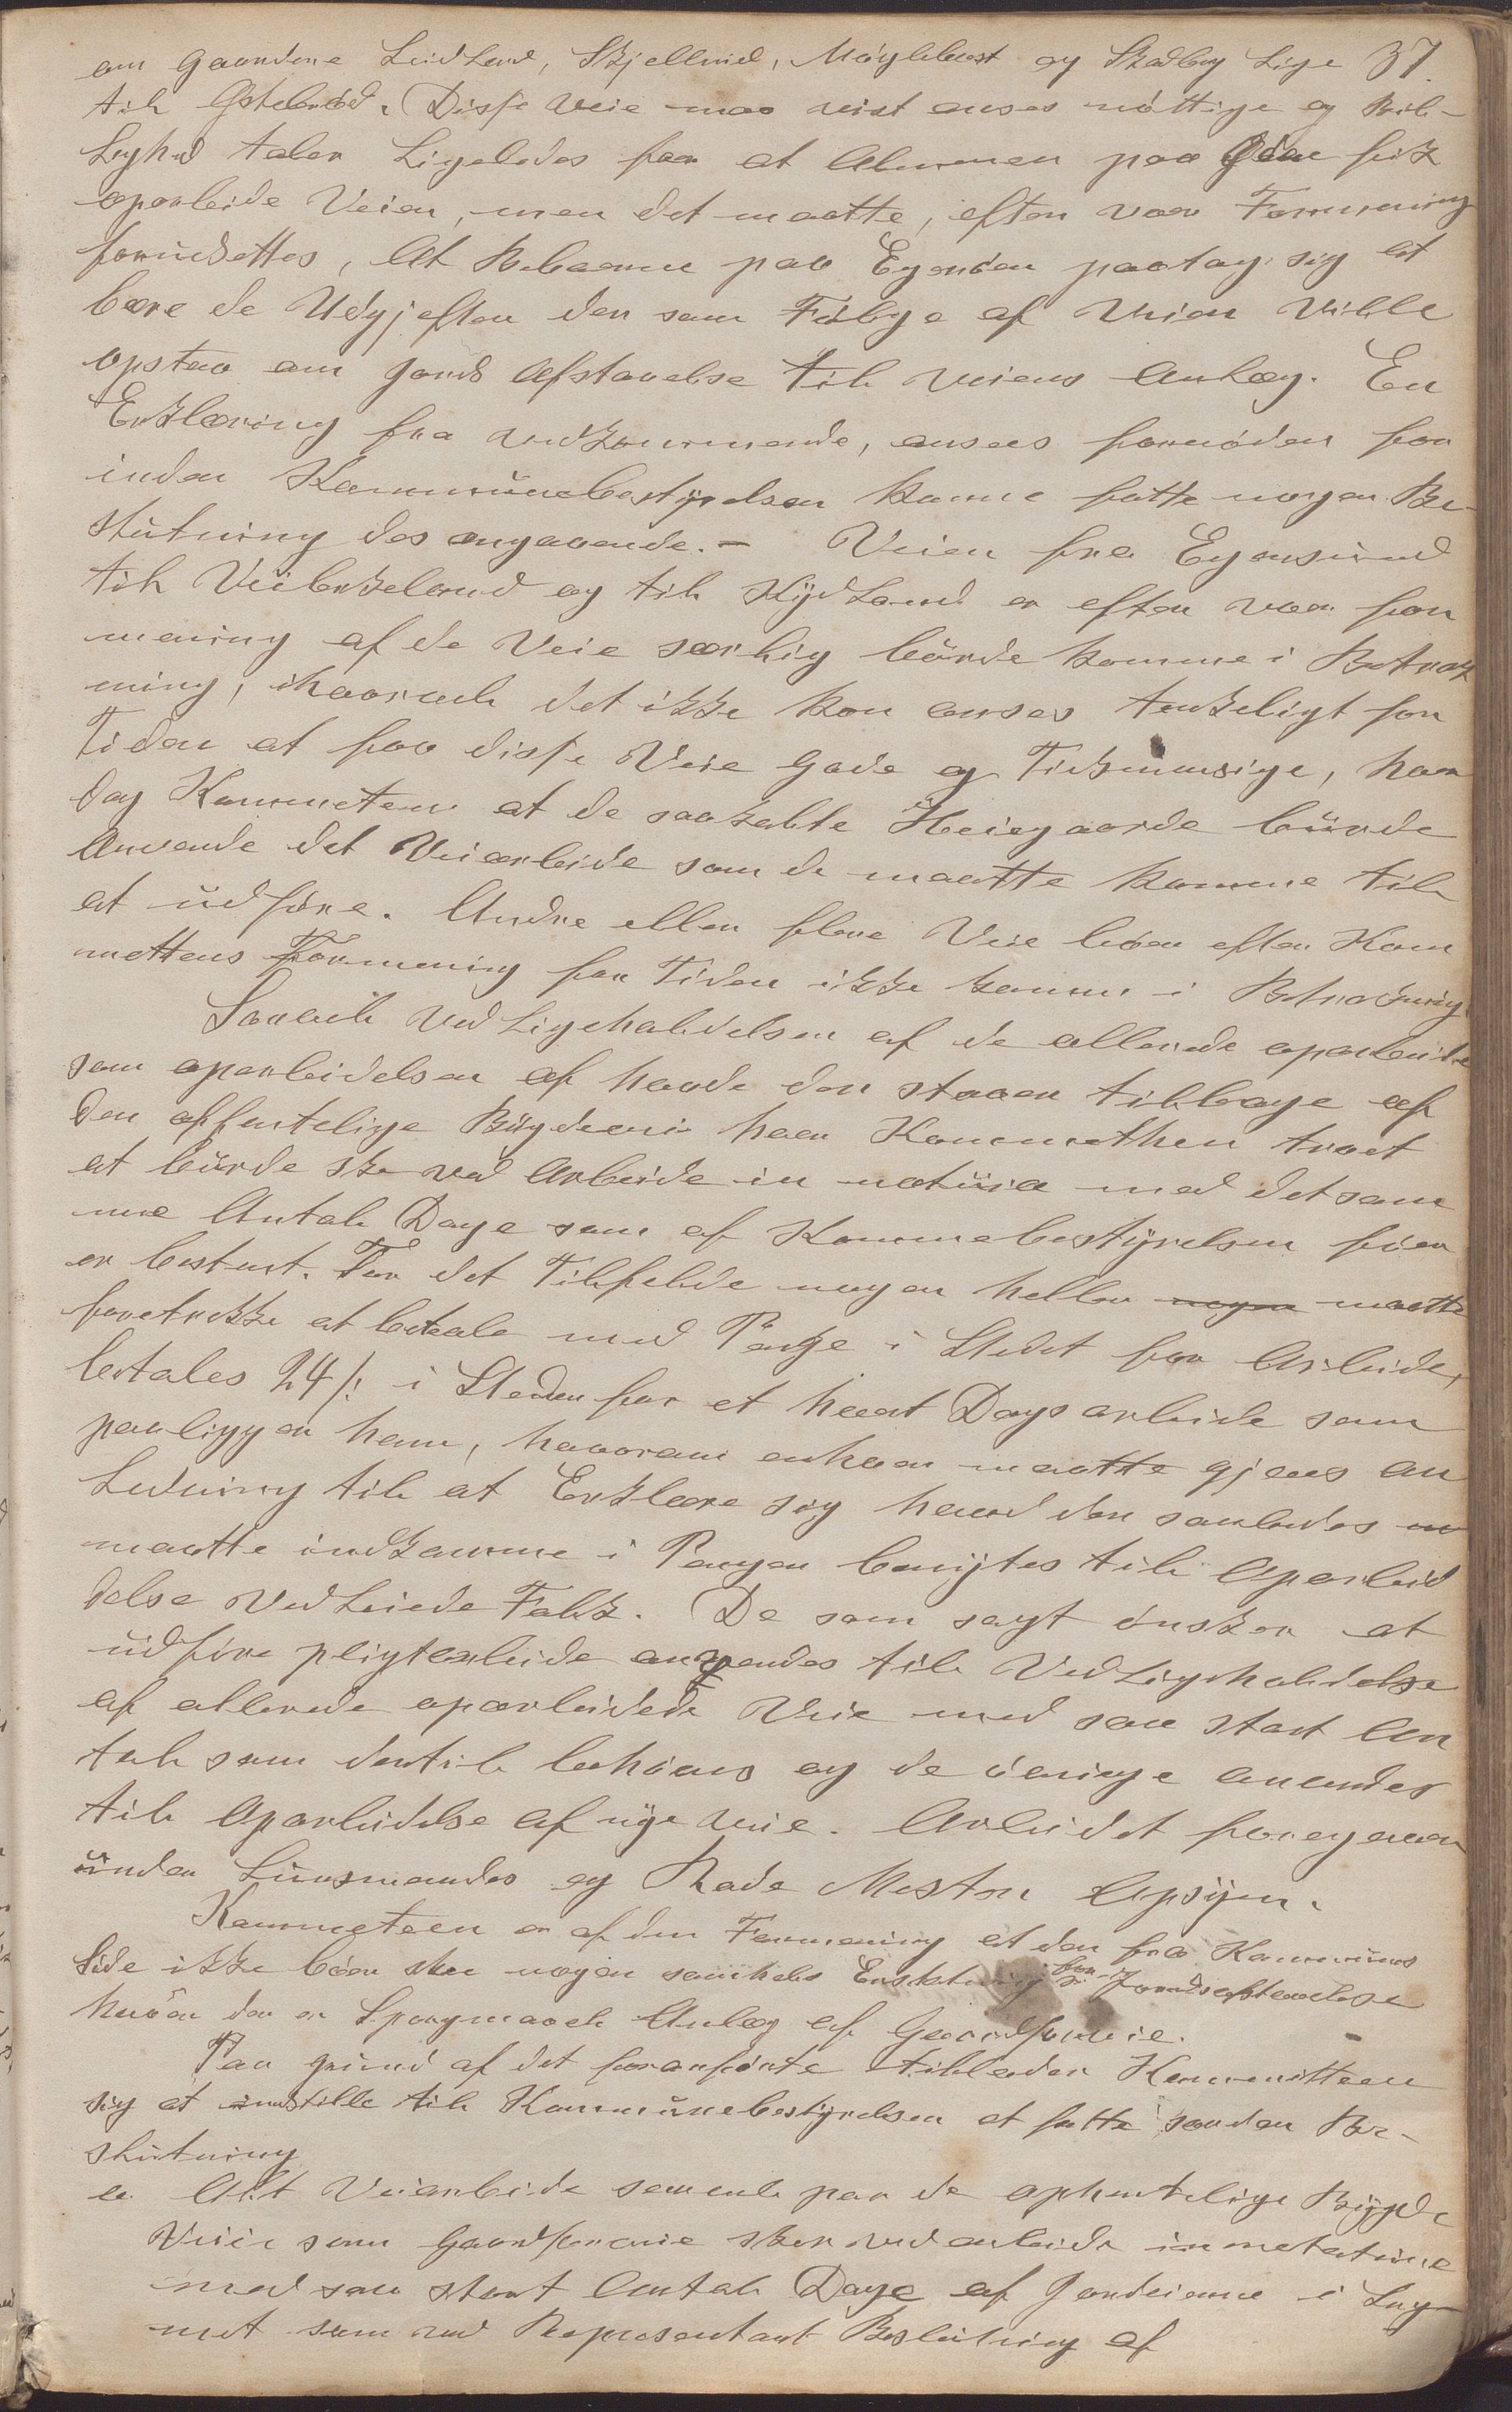 om Gaardene Leidland, Skjelbred, Møglebust og Skadberg Lige 37.
til Gstebrød. Disse Veie maa vist anses nøttige og Bil-
lighed taler Ligeledes for at Almuen paa Øen fik
oparbeide Veien, men det maatte, efter vor Formening
forudsettes, At Beboerne paa Egerøen paatog sig at
bære de Udgjefter der som Følge af Veien Ville
opstaa om Jords Afstaaelse til Veiens Anlæg. En
Erklæring fra vedkommende, ansees fornøden for
inden Kommunebestyrelsen kunne fatte nogen Be-
slutning des angaaende. – Veien fra Egersund
til Veibrkeland og til Kydland er efter vor for
mening af de Veie særlig burde komme i Betrak
ning, ihvorvel det ikke kan anses tenkeligt for
Tiden at faa disse Veie Gode og Tidsmæsige, har
dog Kommeteen at de saakalte Heiegaarde burde
Anvende det Veiarbeide som de maatte komme til
at udføre. Andre eller flere Veie bør efter Kom
metteens Formening for Tiden ikke komme i Betrakning
Saavel Vedligeholdelsen af de allerede oparbeidede
som oparbeidelsen af hvad der staaer tilbage af
den offentelige Bygdevei har Kommethen troet
at burde ske ved Arbeide in natura med det sam
me Antal Dage som af Kommebestyrelsen før
er bestemt. For det Tilfelde nogen heller maatte
foretrekke at betale med Penge i Stedet for Arbeide,
betales 24 /: i Steden for et hvert Dags arbeide som
paaligger ham, hvorom enhver maatte gives an
Ledning til at Erklære sig hvad der saaledes
maatte indkomme i Penger benyttes til Oparbeid
delse ved Leiede Folk. De som sagt ønsker at
udføre pligtarbeide anvendes til Vedligeholdelse
af allerede oparbeidede Veie med saa stort An
tal som dertil behøves og de øvrige anvendes
til Oparbeidelse af nye Veie. Arbeidet foregaaer
under Linsmandes og Rode Mestrer Opsyn.
Kommeteen er af den Formening at der fra Kommunes
Side ikke bør ske nogen somhelst Erstatning for Jordsafstaaelse
hvor der er Spørgmaal Anlæg af Gaardsveie.
Paa grund af det foranførte tillader Kommitteen
sig at indstille til Kommunebestyrelsen at fatte saadan Be-
slutning
a. Alt Veiarbeide saavel paa de ophentelige Bygde
Veie som Gaardsveie sker ved arbeide in natura
med saa stort Antal Dage af Jordeierne i Sog-
net som ved Representant Beslutning af